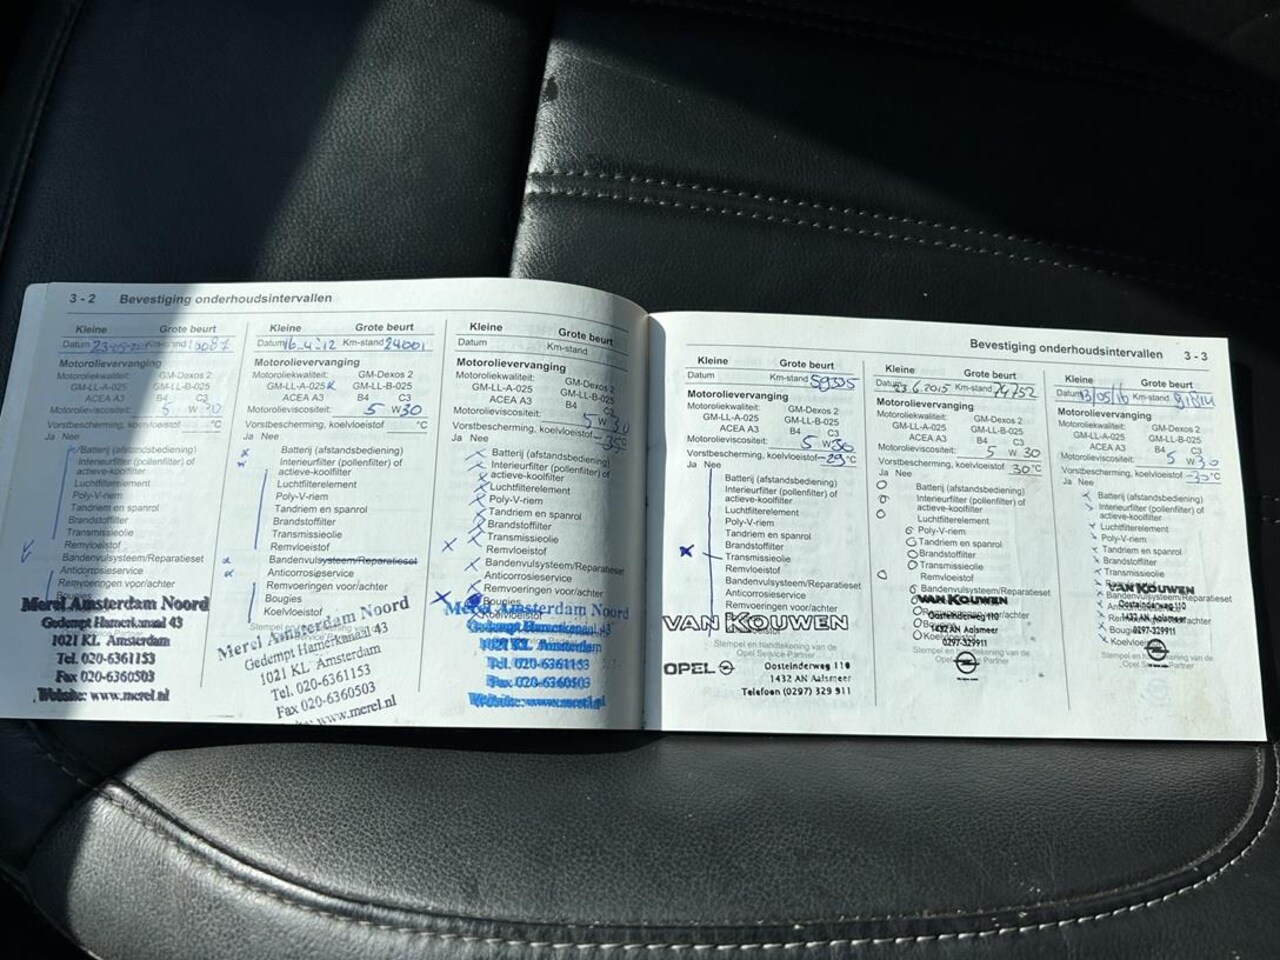 3 - 2 Bevestiging onderhoudsintervallen
Kleine Grote beurt
Datum Km-stand
Motorolievervanging
Motoroliekwaliteit: GM-Dexos 2
GM-LL-A-025 GM-LL-B-025
ACEA A3 B4 C3
Motorolieviscositeit: 5 W 30
Vorstbescherming, koelvloeistof °C
Ja Nee
Batterij (afstandsbediening)
Interieurfilter (pollenfilter) of
actieve-koolfilter
Luchtfilterelement
Poly-V-riem
Tandriem en spanrol
Brandstoffilter
Transmissieolie
Remvloeistof
Bandenvulsysteem/Reparatieset
Anticorrosieservice
Remvoeringen voor/achter
Bougies
Merel Amsterdam Noord
Gedempt Hamerkanaal 43
1021 KL Amsterdam
Tel. 020-6361153
Fax 020-6360503
Website: www.merel.nl
Kleine Grote beurt
Datum 16.4.12 Km-stand 24001
Motorolievervanging
Motoroliekwaliteit: GM-Dexos 2
GM-LL-A-025 GM-LL-B-025
ACEA A3 B4 C3
Motorolieviscositeit: 5 W 30
Vorstbescherming, koelvloeistof °C
Ja Nee
Batterij (afstandsbediening)
Interieurfilter (pollenfilter) of
actieve-koolfilter
Luchtfilterelement
Poly-V-riem
Tandriem en spanrol
Brandstoffilter
Transmissieolie
Remvloeistof
Bandenvulsysteem/Reparatieset
Anticorrosieservice
Remvoeringen voor/achter
Bougies
Koelvloeistof
Merel Amsterdam Noord
Gedempt Hamerkanaal 43
1021 KL Amsterdam
Tel. 020-6361153
Fax 020-6360503
www.merel.nl
Kleine Grote beurt
Datum Km-stand
Motorolievervanging
Motoroliekwaliteit: GM-Dexos 2
GM-LL-A-025 GM-LL-B-025
ACEA A3 B4 C3
Motorolieviscositeit: 5 W 30
Vorstbescherming, koelvloeistof -35°C
Ja Nee
Batterij (afstandsbediening)
Interieurfilter (pollenfilter) of
actieve-koolfilter
Luchtfilterelement
Poly-V-riem
Tandriem en spanrol
Brandstoffilter
Transmissieolie
Remvloeistof
Bandenvulsysteem/Reparatieset
Anticorrosieservice
Remvoeringen voor/achter
Bougies
Koelvloeistof
Merel Amsterdam Noord
Gedempt Hamerkanaal 43
1021 KL Amsterdam
Tel. 020-6361153
Fax 020-6360503
Website: www.merel.nl
Bevestiging onderhoudsintervallen 3 - 3
Kleine Grote beurt
Datum Km-stand 59355
Motorolievervanging
Motoroliekwaliteit: GM-Dexos 2
GM-LL-A-025 GM-LL-B-025
ACEA A3 B4 C3
Motorolieviscositeit: 5 W 30
Vorstbescherming, koelvloeistof -29°C
Ja Nee
Batterij (afstandsbediening)
Interieurfilter (pollenfilter) of
actieve-koolfilter
Luchtfilterelement
Poly-V-riem
Tandriem en spanrol
Brandstoffilter
Transmissieolie
Remvloeistof
Bandenvulsysteem/Reparatieset
Anticorrosieservice
Remvoeringen voor/achter
VAN KOUWEN
Stempel en handtekening van de
Opel Service Partner
OPEL
Oosteinderweg 110
1432 AN Aalsmeer
Telefoon (0297) 329 911
Kleine Grote beurt
Datum 23.6.2015 Km-stand 74752
Motorolievervanging
Motoroliekwaliteit: GM-Dexos 2
GM-LL-A-025 GM-LL-B-025
ACEA A3 B4 C3
Motorolieviscositeit: 5 W 30
Vorstbescherming, koelvloeistof 30°C
Ja Nee
Batterij (afstandsbediening)
Interieurfilter (pollenfilter) of
actieve-koolfilter
Luchtfilterelement
Poly-V-riem
Tandriem en spanrol
Brandstoffilter
Transmissieolie
Remvloeistof
Bandenvulsysteem/Reparatieset
VAN KOUWEN
Oosteinderweg 110
1432 AN Aalsmeer
0297-329911
Stempel en handtekening van de
Opel Service Partner
Kleine Grote beurt
Datum 13/05/16 Km-stand
Motorolievervanging
Motoroliekwaliteit: GM-Dexos 2
GM-LL-A-025 GM-LL-B-025
ACEA A3 B4 C3
Motorolieviscositeit: 5 W 30
Vorstbescherming, koelvloeistof -35°C
Ja Nee
Batterij (afstandsbediening)
Interieurfilter (pollenfilter) of
actieve-koolfilter
Luchtfilterelement
Poly-V-riem
Tandriem en spanrol
Brandstoffilter
Transmissieolie
VAN KOUWEN
Bandenvulsysteem/Reparatieset
Oosteinderweg 110
1432 AN Aalsmeer
0297-329911
Koelvloeistof
Stempel en handtekening van de
Opel Service Partner